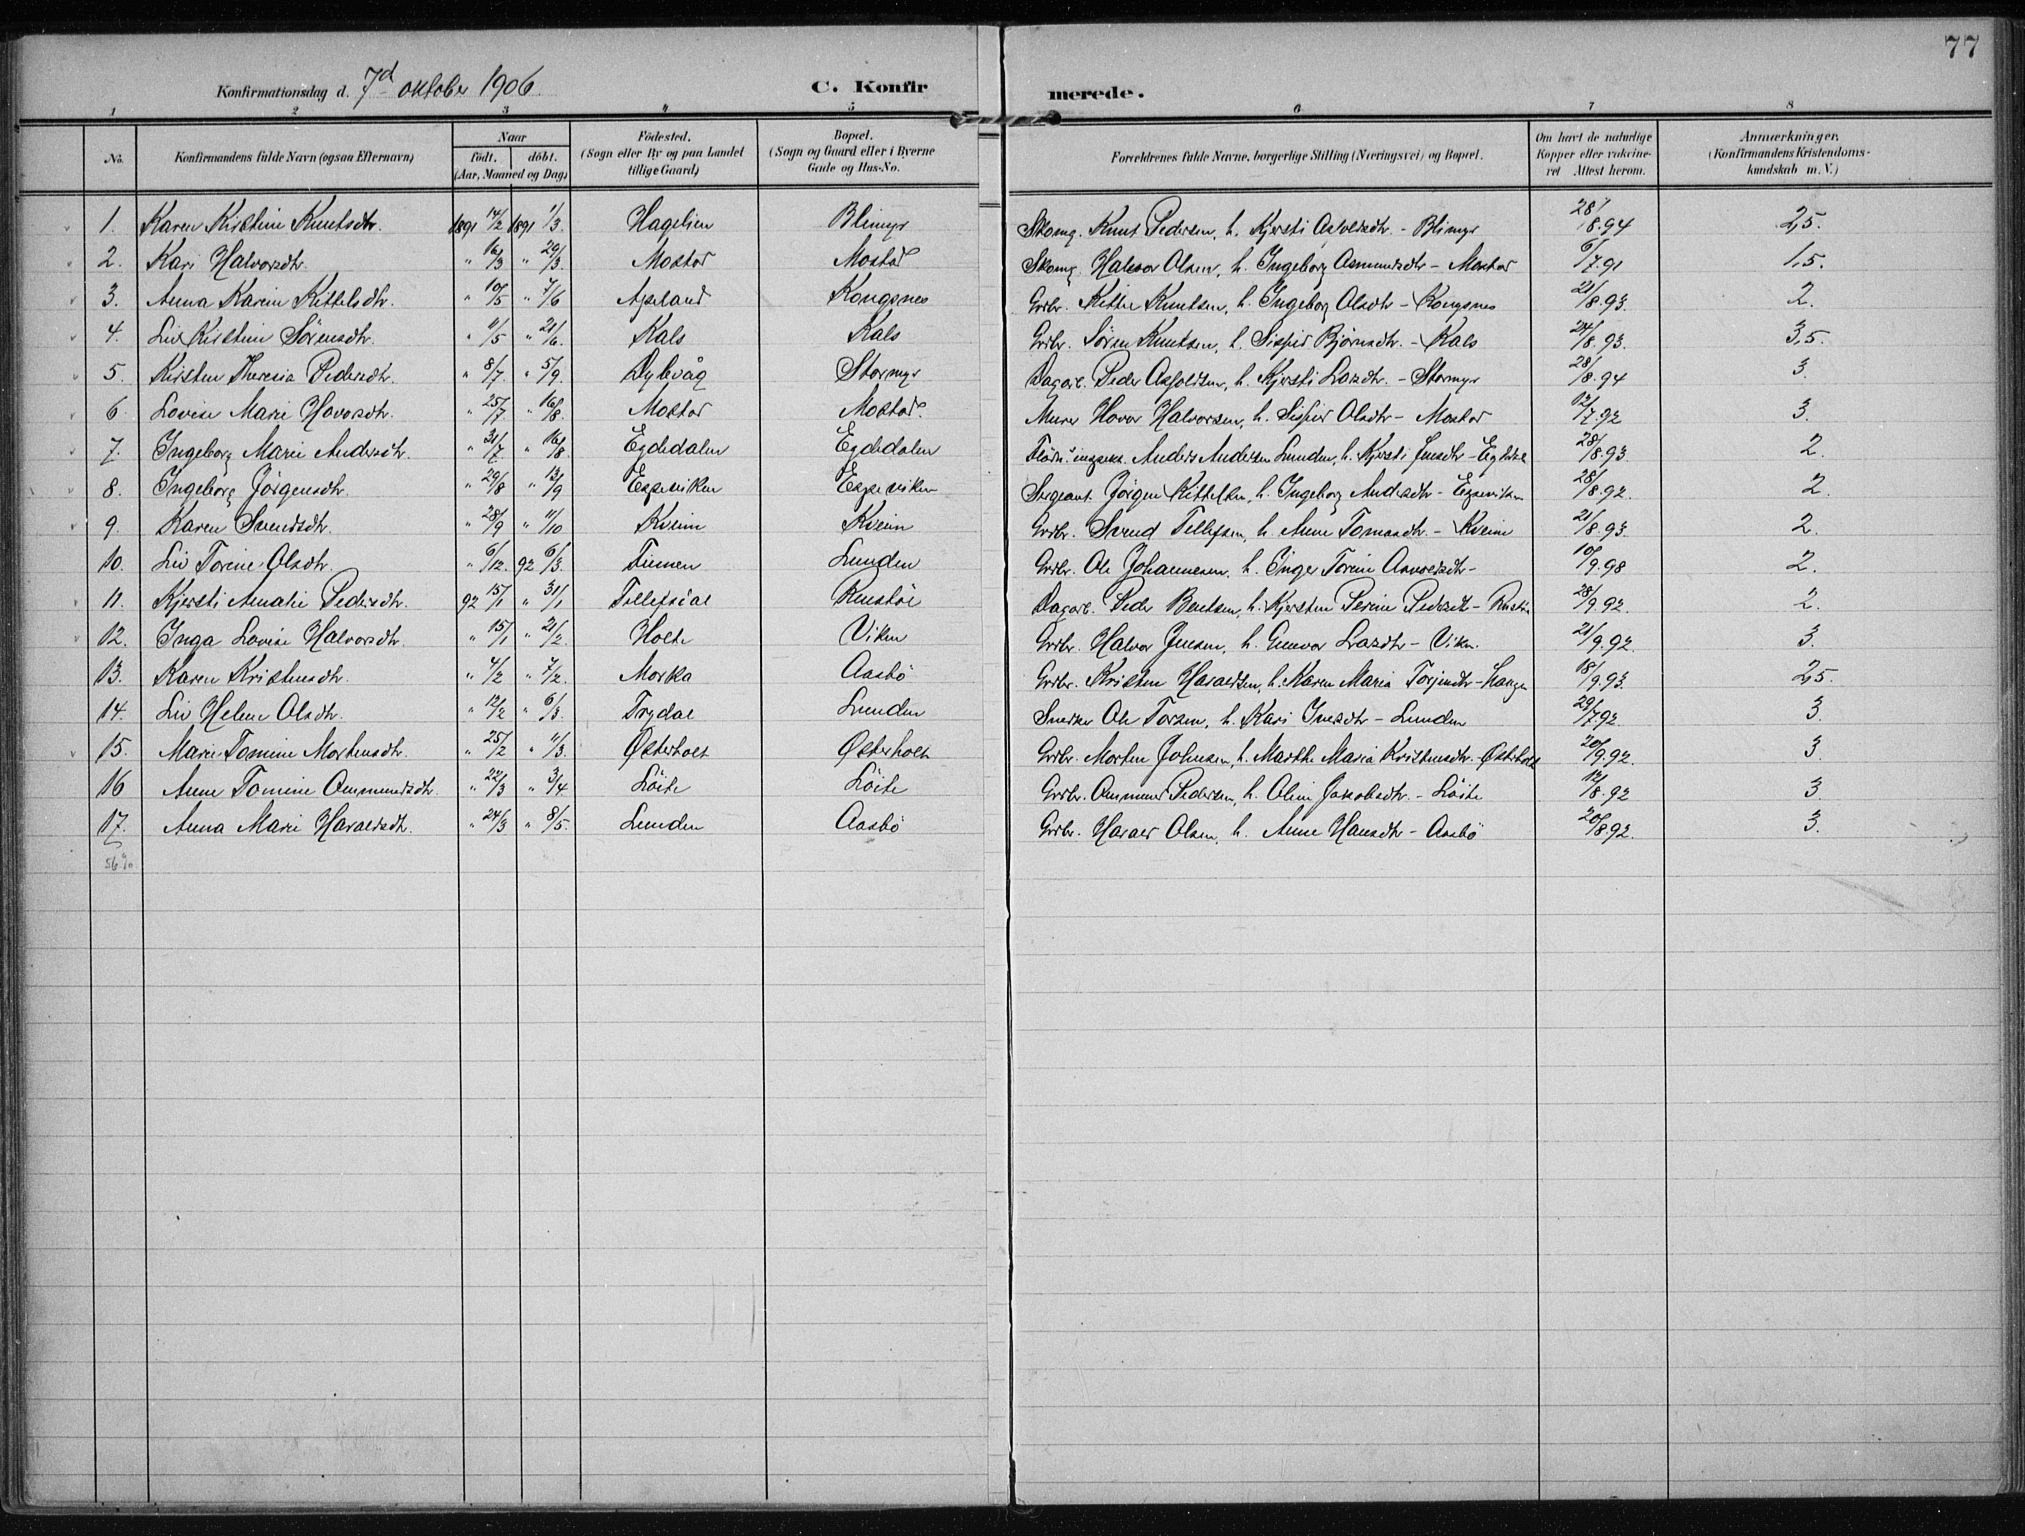 77
Konfirmationsdag d. 7d oktober 1906.
C. Konfirmerede.
1 2 3 4 5 6 7 8
No. Konfirmandens fulde Navn (ogsaa Efternavn) Naar födt. döbt. (Aar, Maaned og Dag) Födested. (Sogn eller By og paa Landet tillige Gaard) Bopæl. (Sogn og Gaard eller i Byerne Gade og Hus-No. Forældrenes fulde Navne, borgerlige Stilling (Næringsvei) og Bopæl. Om havt de naturlige Kopper eller vakcineret Attest herom. Anmærkninger. (Konfirmandens Kristendomskundskab m. V.)
1. Karen Kristine Knutsdtr. 1891 14/2 1891 1/3 Hagelien Blimyr Skomg. Knut Pedersen, h. Kjersti Asvoldsdtr. - Blimyr 28/8.94 2,5.
2. Kari Halvorsdtr. " 16/3 " 29/3. Mostad Mostad Skomg. Halvor Olsen, h. Ingeborg Asmundsdtr - Mostad 6/7.91 1,5.
3. Anna Karine Kittelsdtr. " 10/5 " 7/6 Apeland Kongsnes Grdbr. Kittel Knutsen, h. Ingeborg Olsdtr - Kongsnes 21/8.93. 2.
4. Liv Kristine Sörensdtr. " 11/5 " 21/6. Kals Kals Grdbr. Sören Knutsen, h. Sissel Björnsdtr. - Kals 24/8.93. 3,5.
5. Kirsten Theresia Pedersdtr. " 8/7. " 5/9. Dybvåg Stormyr Dagarb. Peder Asfoldsen, h. Kjersti Larsdtr. - Stormyr 28/8.94 3.
6. Lovise Marie Hovorsdtr. " 25/7 " 16/8. Mostad Mostad. Murer Hovor Halvorsen, h. Sissel Olsdtr - Mostad 12/7.92 3.
7. Ingeborg Marie Andersdtr. " 31/7 " 16/8 Egdedalen Egdedalen Anders Andersen Lunden, h. Kjersti Jensdtr - 28/8.93. 2.
8. Ingeborg Jörgensdtr. " 29/8 " 13/9 Espeviken Espeviken Sergeant Jörgen Kittelsen, h. Ingeborg Andersdtr - Espeviken 28/8.92. 2.
9. Karen Svendsdtr. " 28/9 " 11/10 Kveim Kveim Grdbr. Svend Tellefsen, h. Anne Tomasdtr - Kveim 21/8.93. 2.
10. Liv Torine Olsdtr. " 6/12. 92 6/3. Finnen Lunden Grdbr. Ole Johannesen, h. Inger Torine Asvoldsdtr - 10/9.98 2.
11. Kjersti Amalie Pedersdtr. 92 15/1 " 31/1 Tellefsdal Renstöl Dagarb. Peder Bentsen, h. Kjersten Serine Pedersdtr - 28/9.92. 2.
12. Inga Lovise Halvorsdtr. " 15/1 " 21/2. Holte Viken Grdbr. Halvor Jensen, h. Gunvor Larsdtr - Viken. 21/9.92. 3.
13. Karen Kristensdtr. " 4/2 " 7/2. Morka Aasbö Grdbr. Kristen Haraldsen, h. Karen Maria Torjensdtr - Haugen 18/9.93. 2,5.
14. Liv Helene Olsdtr. " 12/2 " 6/3. Trydal Lunden Snedker Ole Torsen, h. Kari Iversdtr - Lunden 29/7.92. 3.
15. Marie Tomine Mortensdtr. " 25/2 " 11/3. Österholt Österholt Grdbr. Morten Johnsen, h. Marthe Maria Kristensdtr. Österholt 20/9.92. 3.
16 Anne Tomine Ommundsdtr. " 22/3 " 3/4 Löite Löite Grdbr. Ommund Pedersen, h. Oline Jakobsdtr. - Löite 12/8.92 3
17. Anna Marie Haraldsdtr. " 24/3 " 8/5. Lunden Aasbö Grdbr. Harald Olsen, h. Anne Hansdtr - Aasbö 20/8.92. 3.